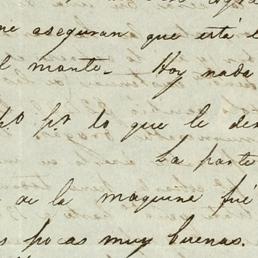 me aseguran que está
el monte. Hoy nada
pr. lo que le
La parte
de la maquina fué
pocas muy buenas.